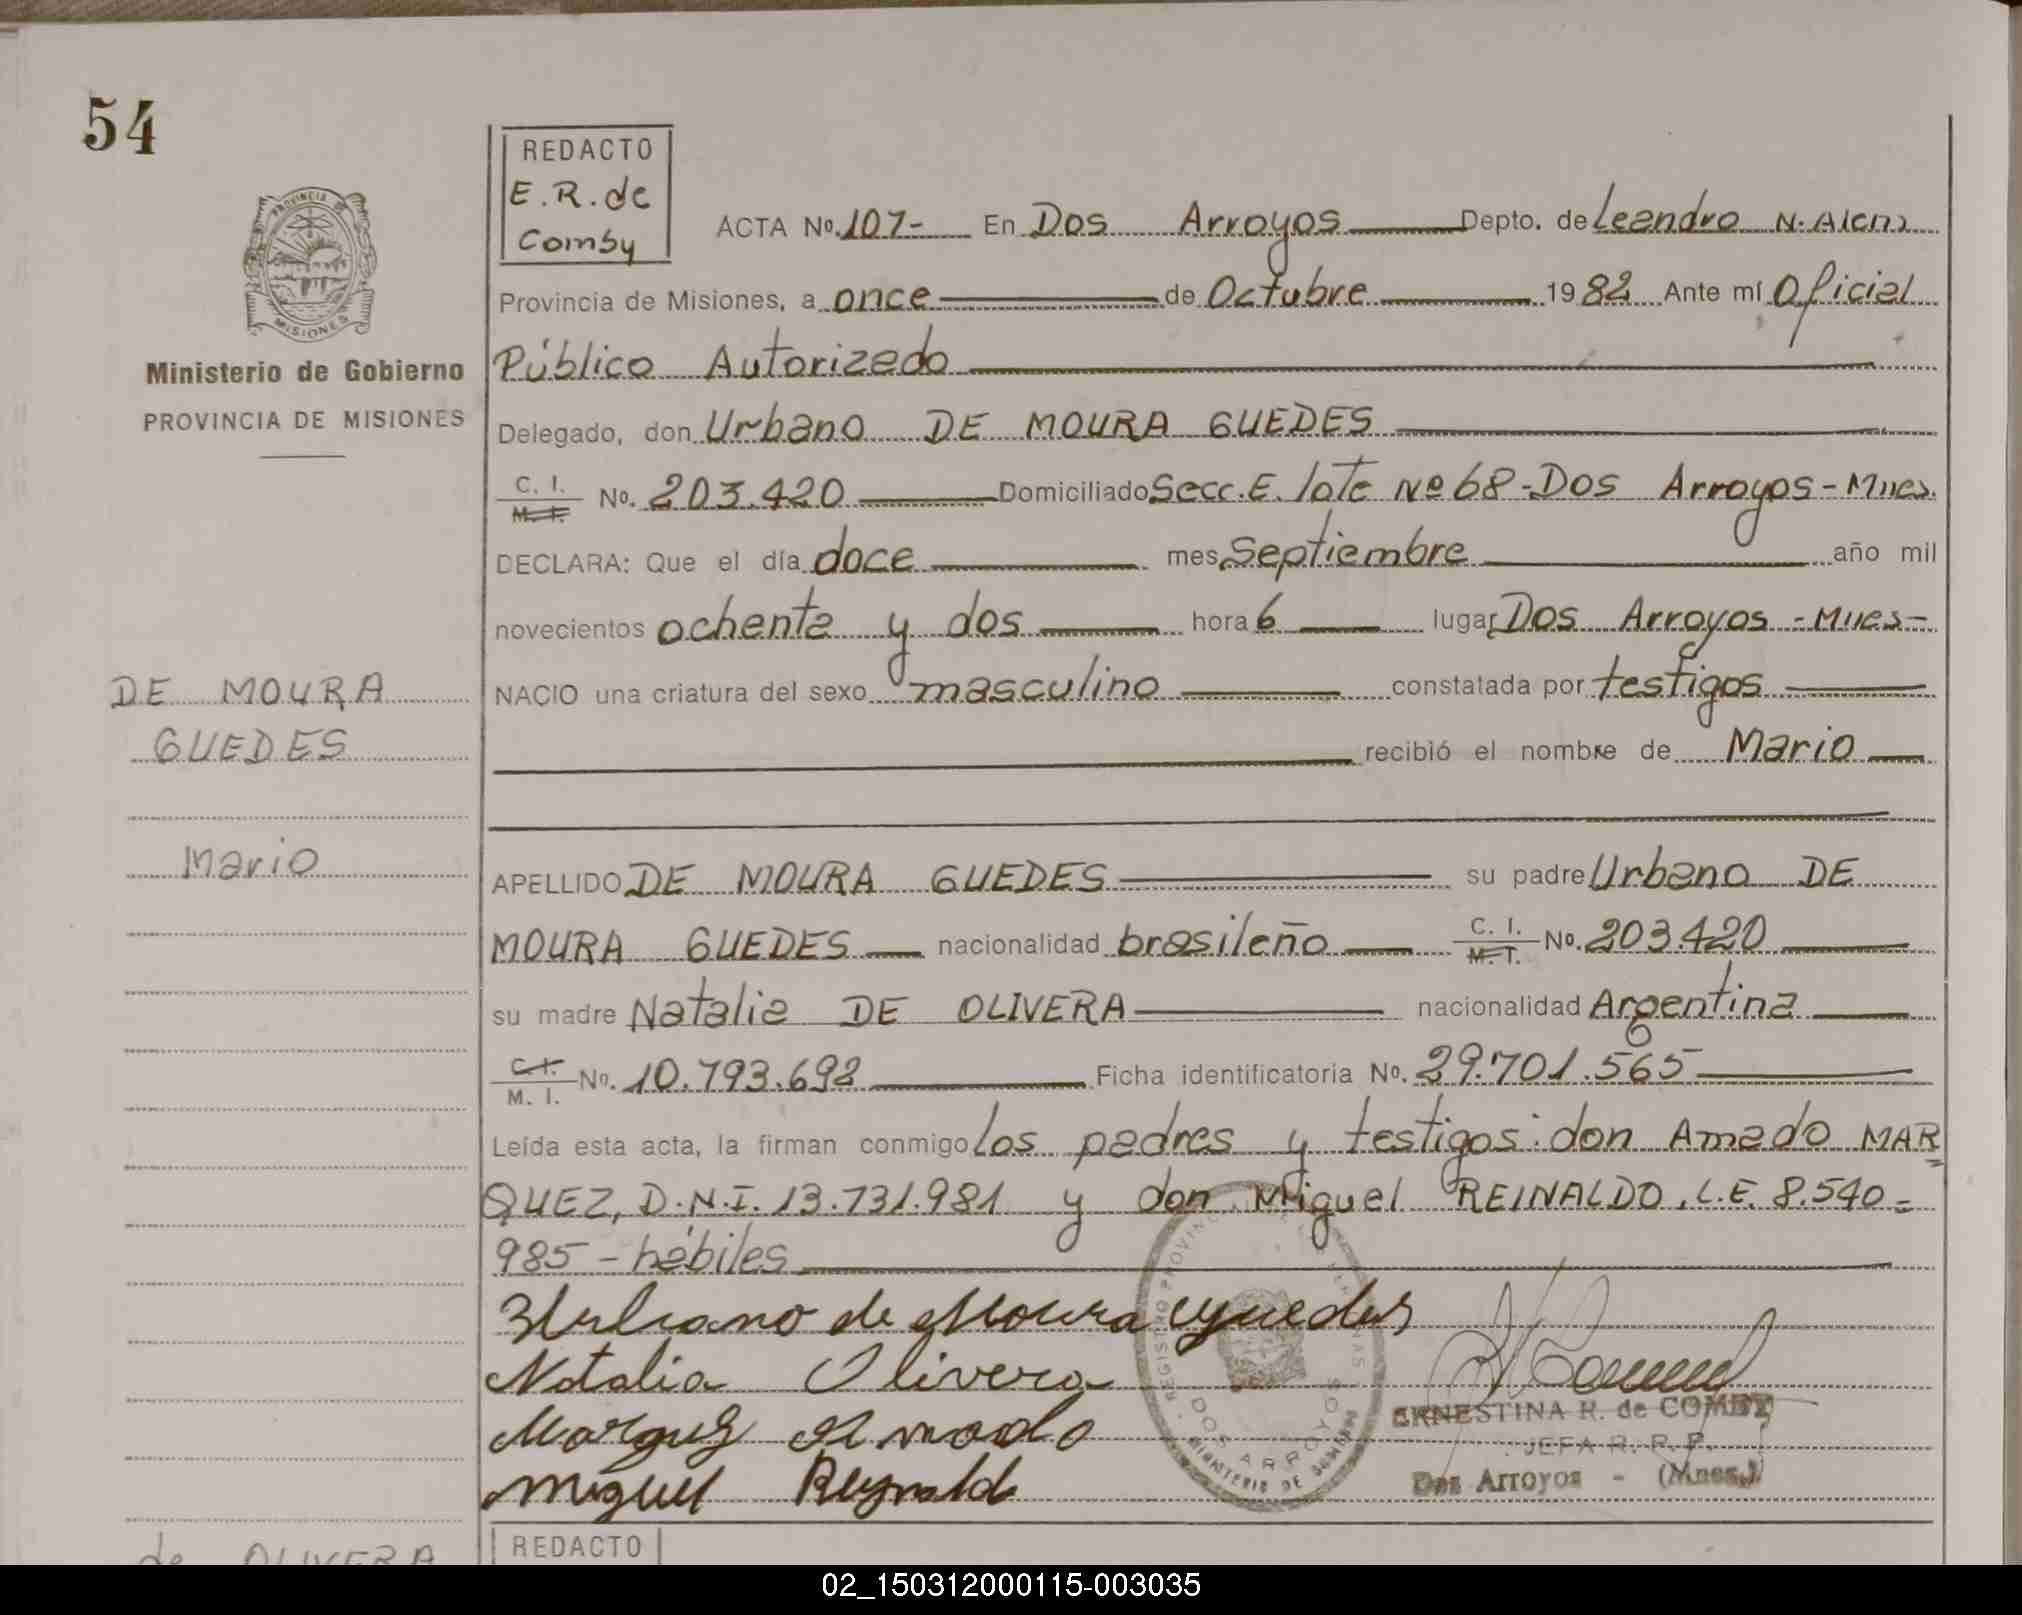 54
REDACTO
E. R. de
Comby
ACTA No. 107- En Dos Arroyos Depto. de Leandro N. Alem
PROVINCIA DE
MISIONES
Provincia de Misiones, a once de Octubre 1982 Ante mí Oficial
Ministerio de Gobierno
Público Autorizado
PROVINCIA DE MISIONES
Delegado, don Urbano DE MOURA GUEDES
C. I. M. I. No. 203.420 Domiciliado Secc. E. lote Nº 68 - Dos Arroyos - Mnes.
DECLARA: Que el día doce mes Septiembre año mil
novecientos ochenta y dos hora 6 lugar Dos Arroyos - Mnes -
DE MOURA
NACIO una criatura del sexo masculino constatada por testigos
GUEDES
recibió el nombre de Mario
Mario
APELLIDO DE MOURA GUEDES su padre Urbano DE
MOURA GUEDES nacionalidad brasileño C. I. M. I. No. 203.420
su madre Natalia DE OLIVERA nacionalidad Argentina
C. I. M. I. No. 10.793.692 Ficha identificatoria No. 29.701.565
Leída esta acta, la firman conmigo los padres y testigos: don Amado MAR
QUEZ, D.N.I. 13.731.981 y don Miguel REINALDO, L.E. 8.540=
985 - hábiles
Urbano de Moura Guedes
Natalia Olivera
Marquez Amado
Miguel Reynaldo
REGISTRO PROVINCIAL DE LAS PERSONAS
DOS ARROYOS
MINISTERIO DE GOBIERNO
ERNESTINA R. de COMBY
JEFA R. P. P.
Dos Arroyos - (Mnes.)
REDACTO
de OLIVERA
02_150312000115-003035